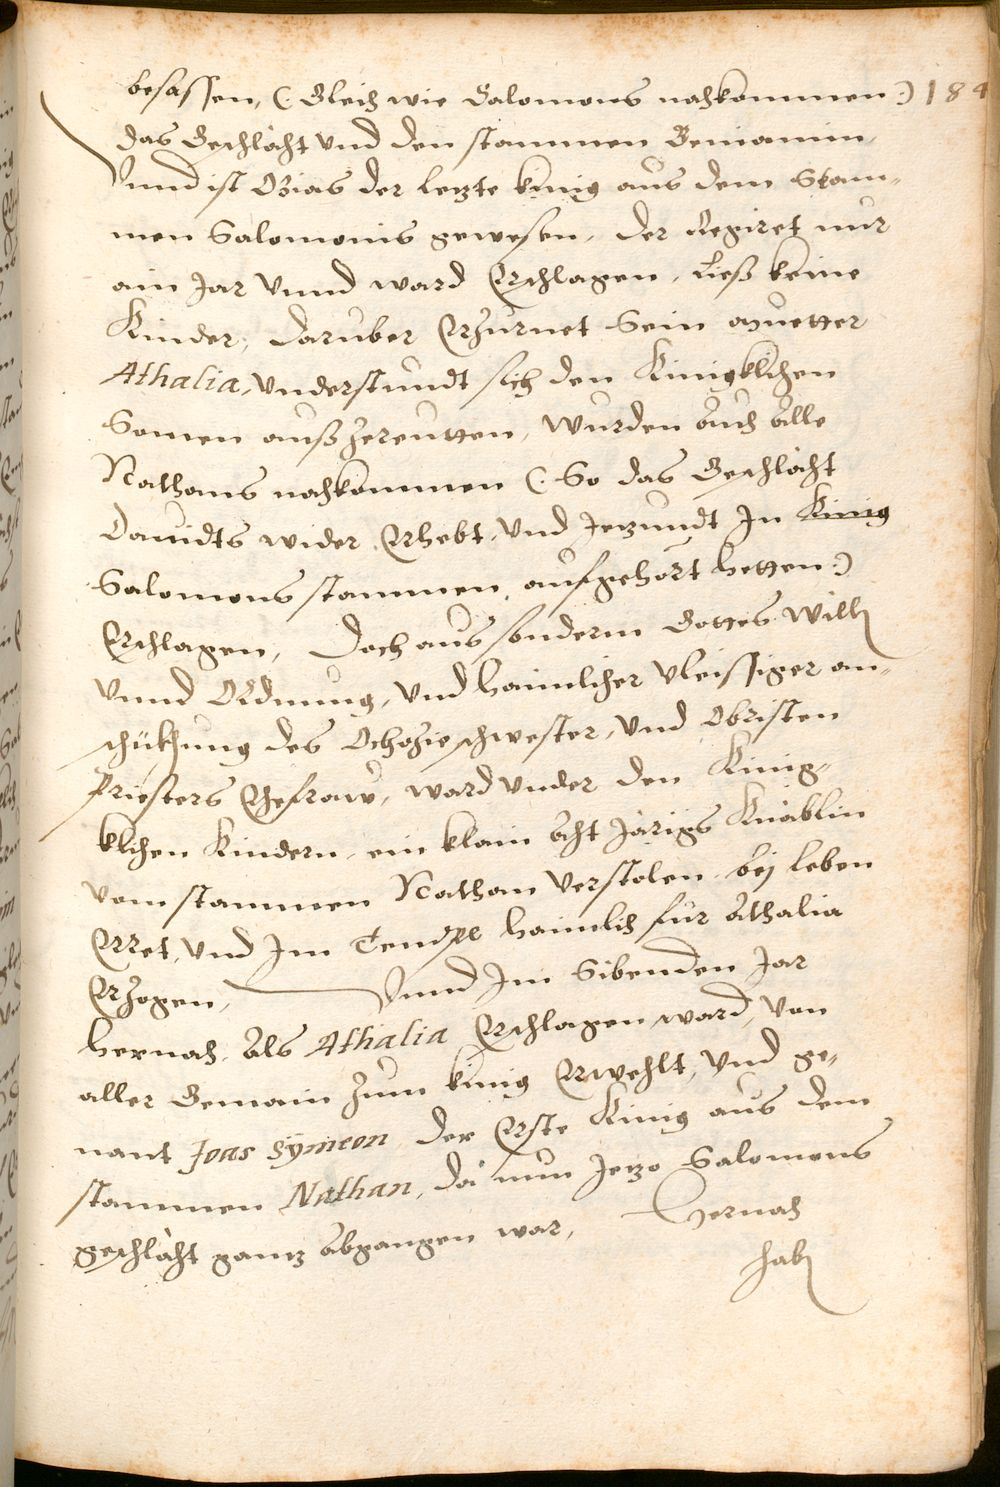 besassen, (: Gleich wie Salomons nachkommen :) 184
das Geschlächt vnd den stammen Beniamin,
Vnnd ist Ozias der letzte kinig aus dem Stam-
men Salomonis gewesen, der Regiret nur
ain Jar vnnd ward Erschlagen, ließ keine
Kinder, daruber Erzurnet Sein muetter
Athalia, vnderstundt sich den Kinigklichen
Somen auß zereutten, Wurden auch Alle
Nathans nachkommen (: So das Geschlächt
Dauidts wider Erhebt, vnd Jetzundt Jn Kinig
Salomons stammen, aufgehört hetten :)
Erschlagen, Doch aus sonderm Gottes Willen
Vnnd Ordnung, vnd haimlicher vleissiger an-
schükhung des Ochozie schwester, vnd Obristen
Priesters Ehefraw, ward vnder den Kinig-
klichen Kindern, ein klain Acht Järigs Knäblin
vom stammen Nathan verstolen, bej leben
Erret, vnd Jm Tempe haimlich für Athalia
Erzogen, Vnnd Jm Sibenden Jar
hernach, Als Athalia Erschlagen ward, von
aller Gemain zum kinig Erwehlt, vnd ge-
nant Joas Symeon der Erste Kinig aus dem
stammen Nathan, da nun Jetzo Salomons
geschlächt gantz Abgangen war, Hernach
haben